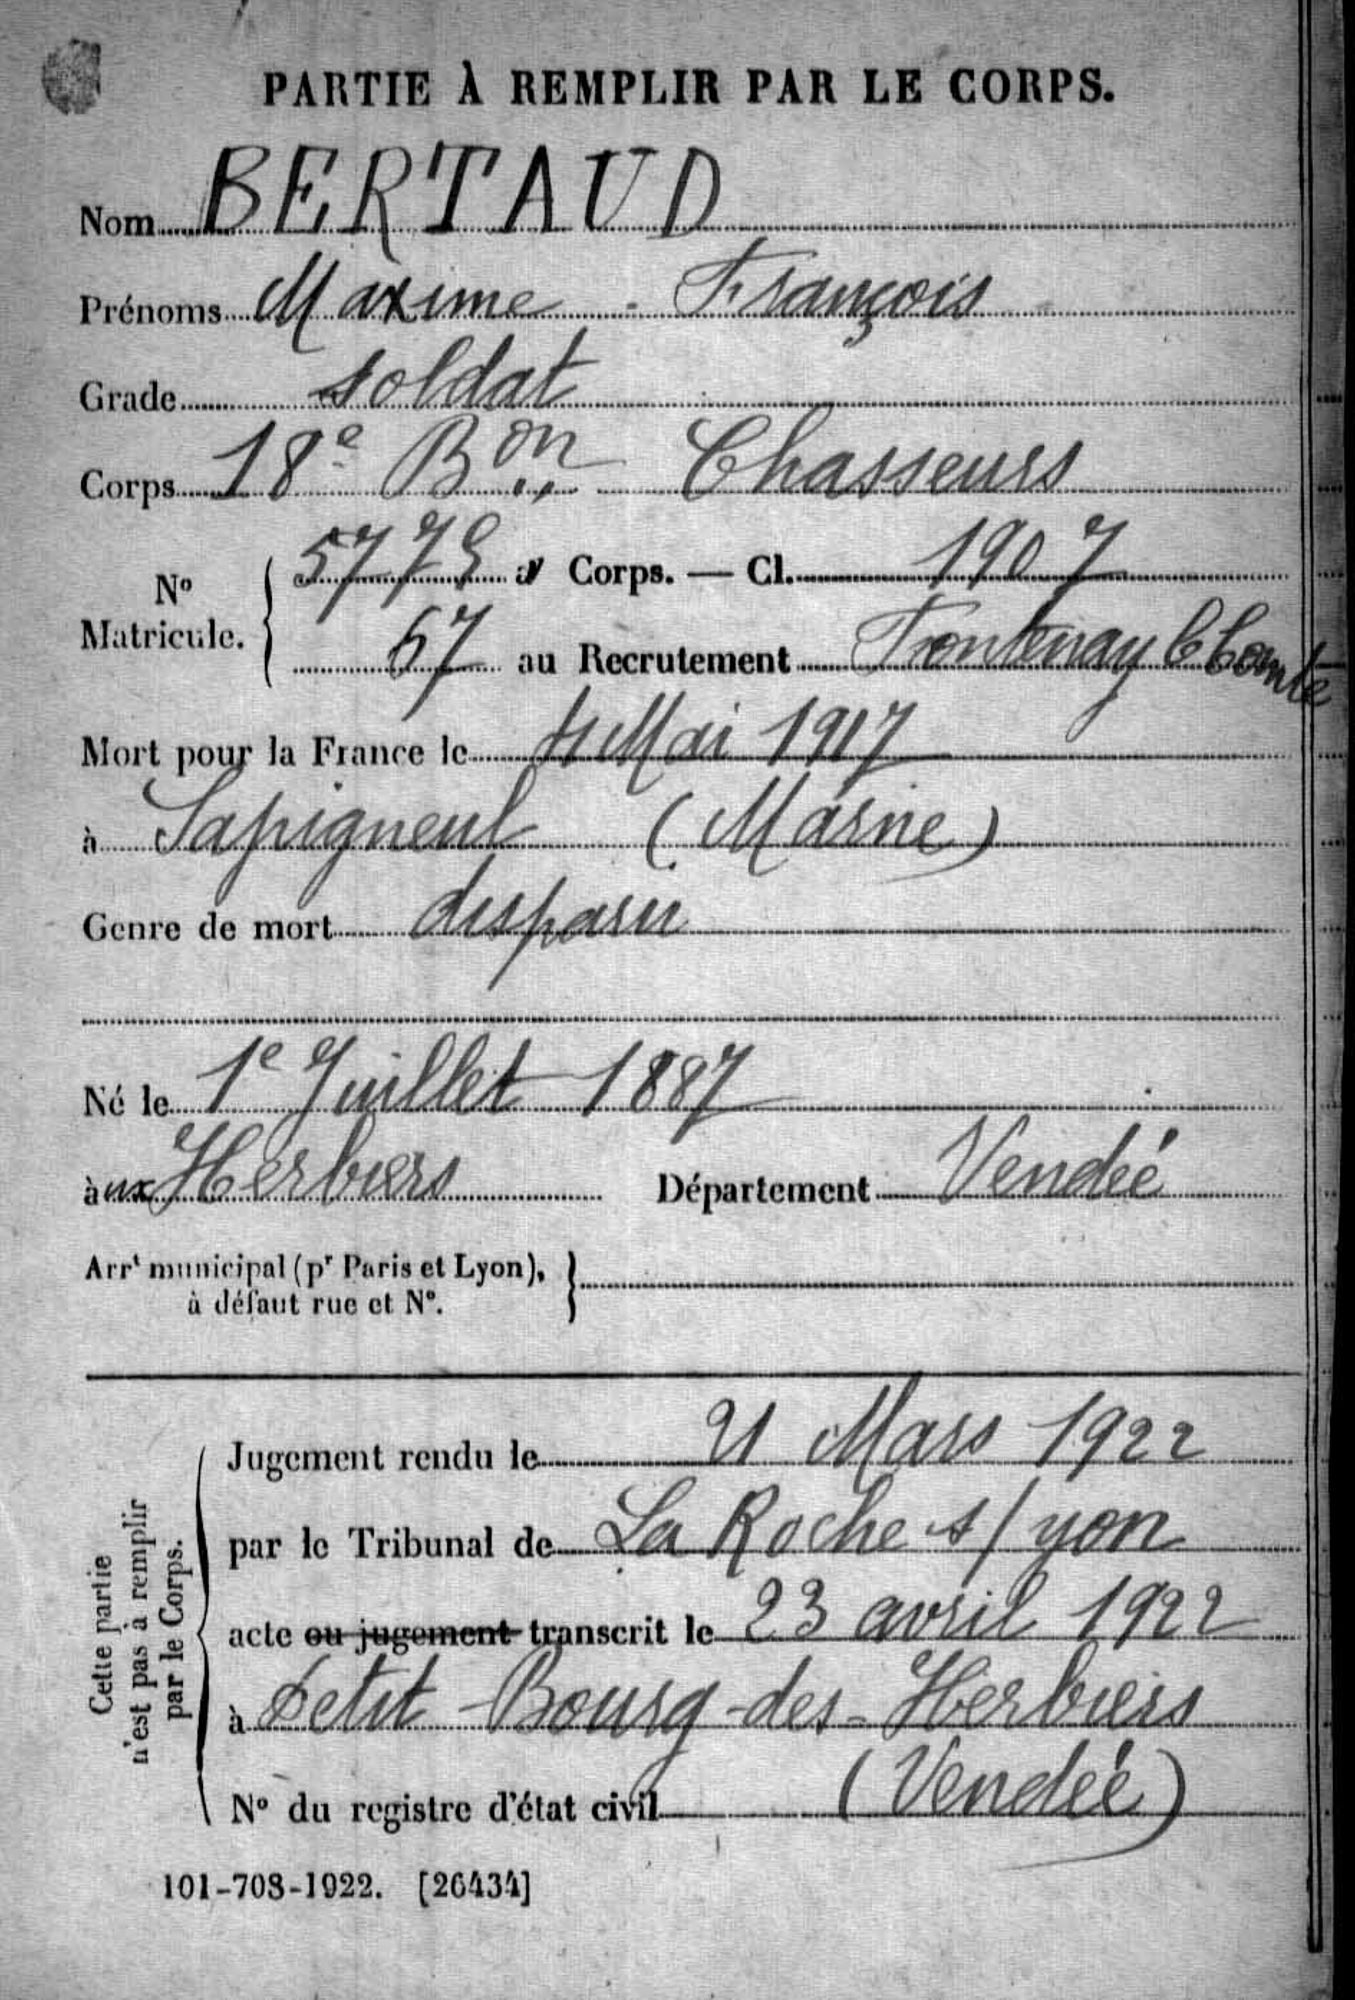 PARTIE À REMPLIR PAR LE CORPS.
Nom BERTAUD
Prénoms Maxime - François
Grade soldat
Corps 18e Bon Chasseurs
No Matricule. { 5779 au Corps. — Cl. 1907
67 au Recrutement Fontenay le Comte
Mort pour la France le 4 Mai 1917
à Sapigneul (Marne)
Genre de mort disparu
Né le 1e Juillet 1887
aux Herbiers Département Vendée
Arrt municipal (pr Paris et Lyon), }
à défaut rue et No.
Cette partie
n'est pas à remplir
par le Corps.
Jugement rendu le 21 Mars 1922
par le Tribunal de La Roche s/yon
acte ou jugement transcrit le 23 avril 1922
à Petit-Bourg-des-Herbiers
No du registre d'état civil (Vendée)
101-708-1922. [26434]